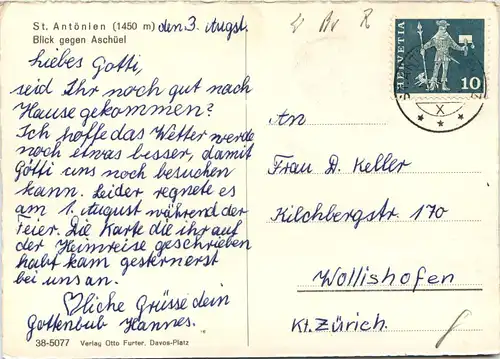 St. Antönien (1450 m) den 3. Augst.
Blick gegen Aschüel
Liebes Gotti,
seid Ihr noch gut nach
Hause gekommen?
Ich hoffe das Wetter werde
noch etwas besser, damit
Götti uns noch besuchen
kann. Leider regnete es
am 1. August während der
Feier. Die Karte die ihr auf
der Heimreise geschrieben
habt kam gestern erst
bei uns an.
♡liche Grüsse dein
Gottenbub Hannes.
38-5077 Verlag Otto Furter, Davos-Platz
HELVETIA
10
X
An
Frau D. Keller
Kilchbergstr. 170
Wollishofen
Kt. Zürich.